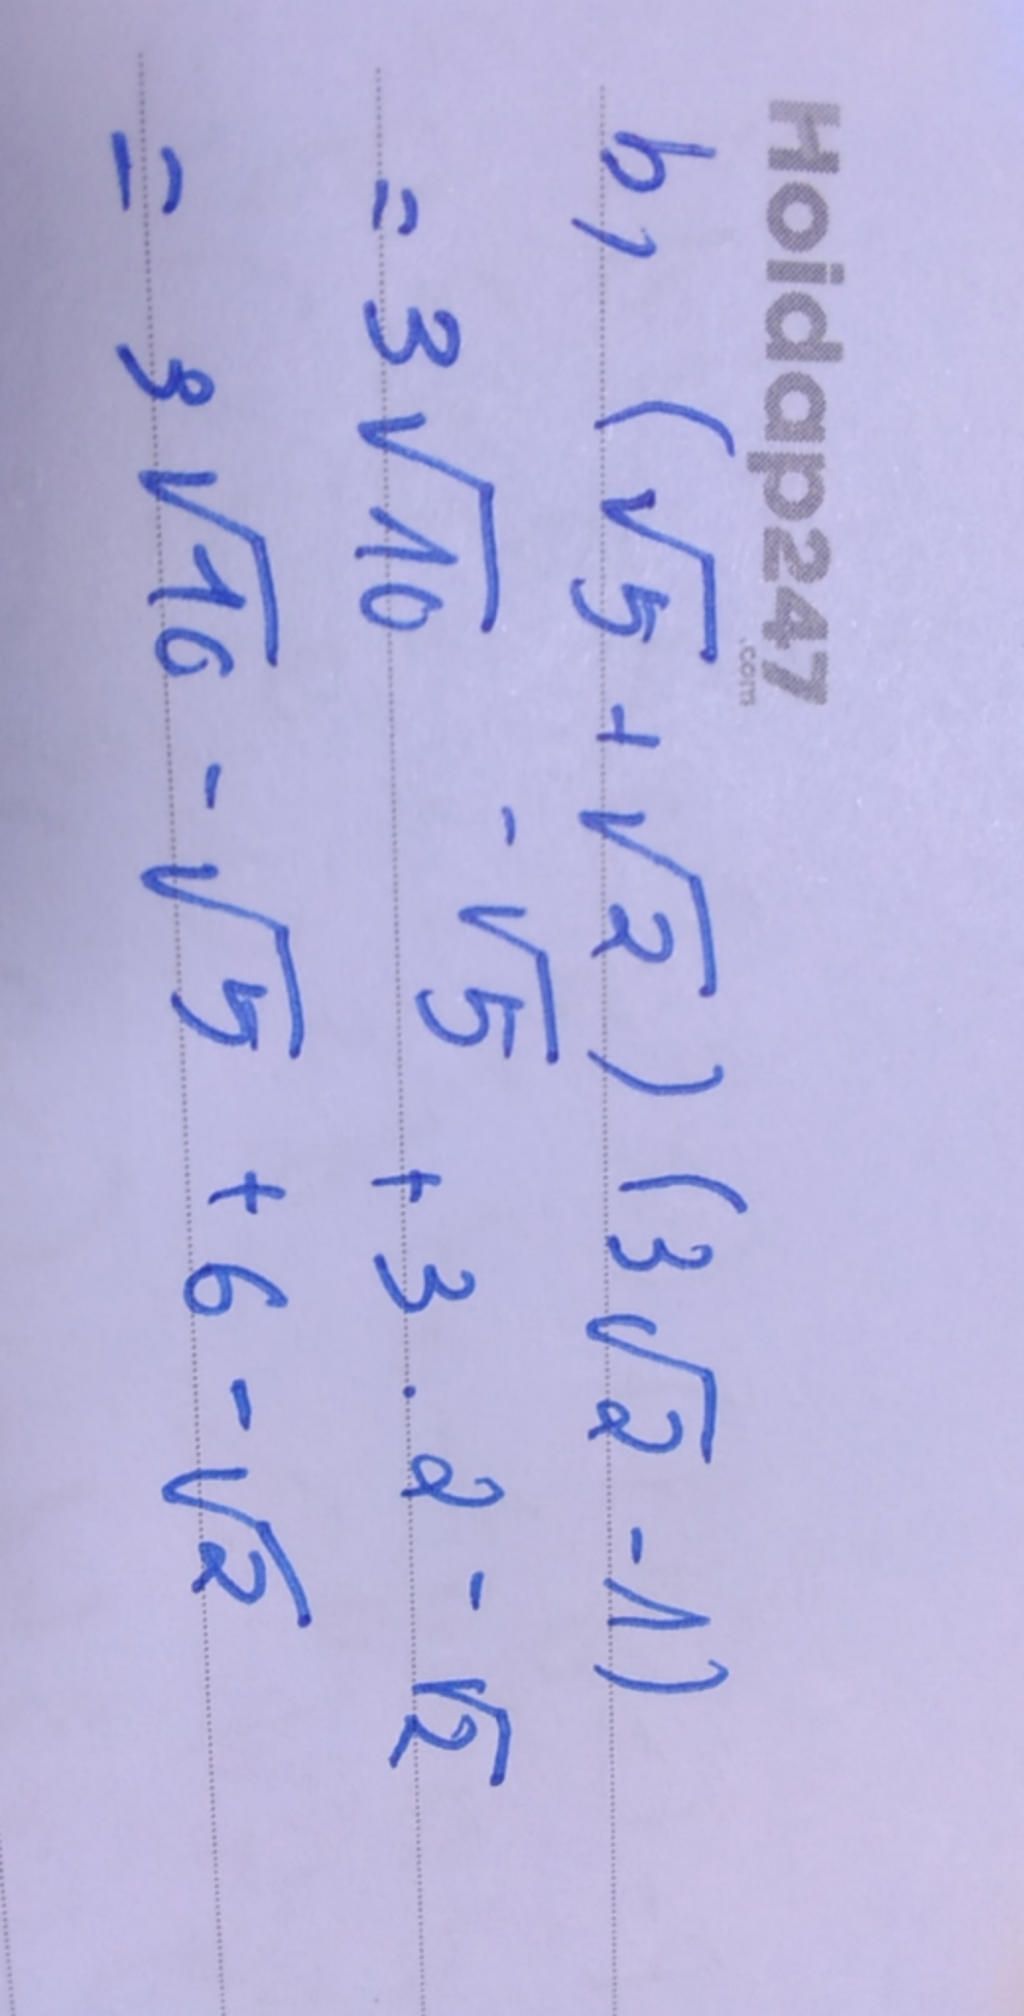 Hoidap247
.com
b, (√5 + √2) (3√2 - 1)
= 3√10 - √5 + 3 . 2 - √2
= 3√10 - √5 + 6 - √2